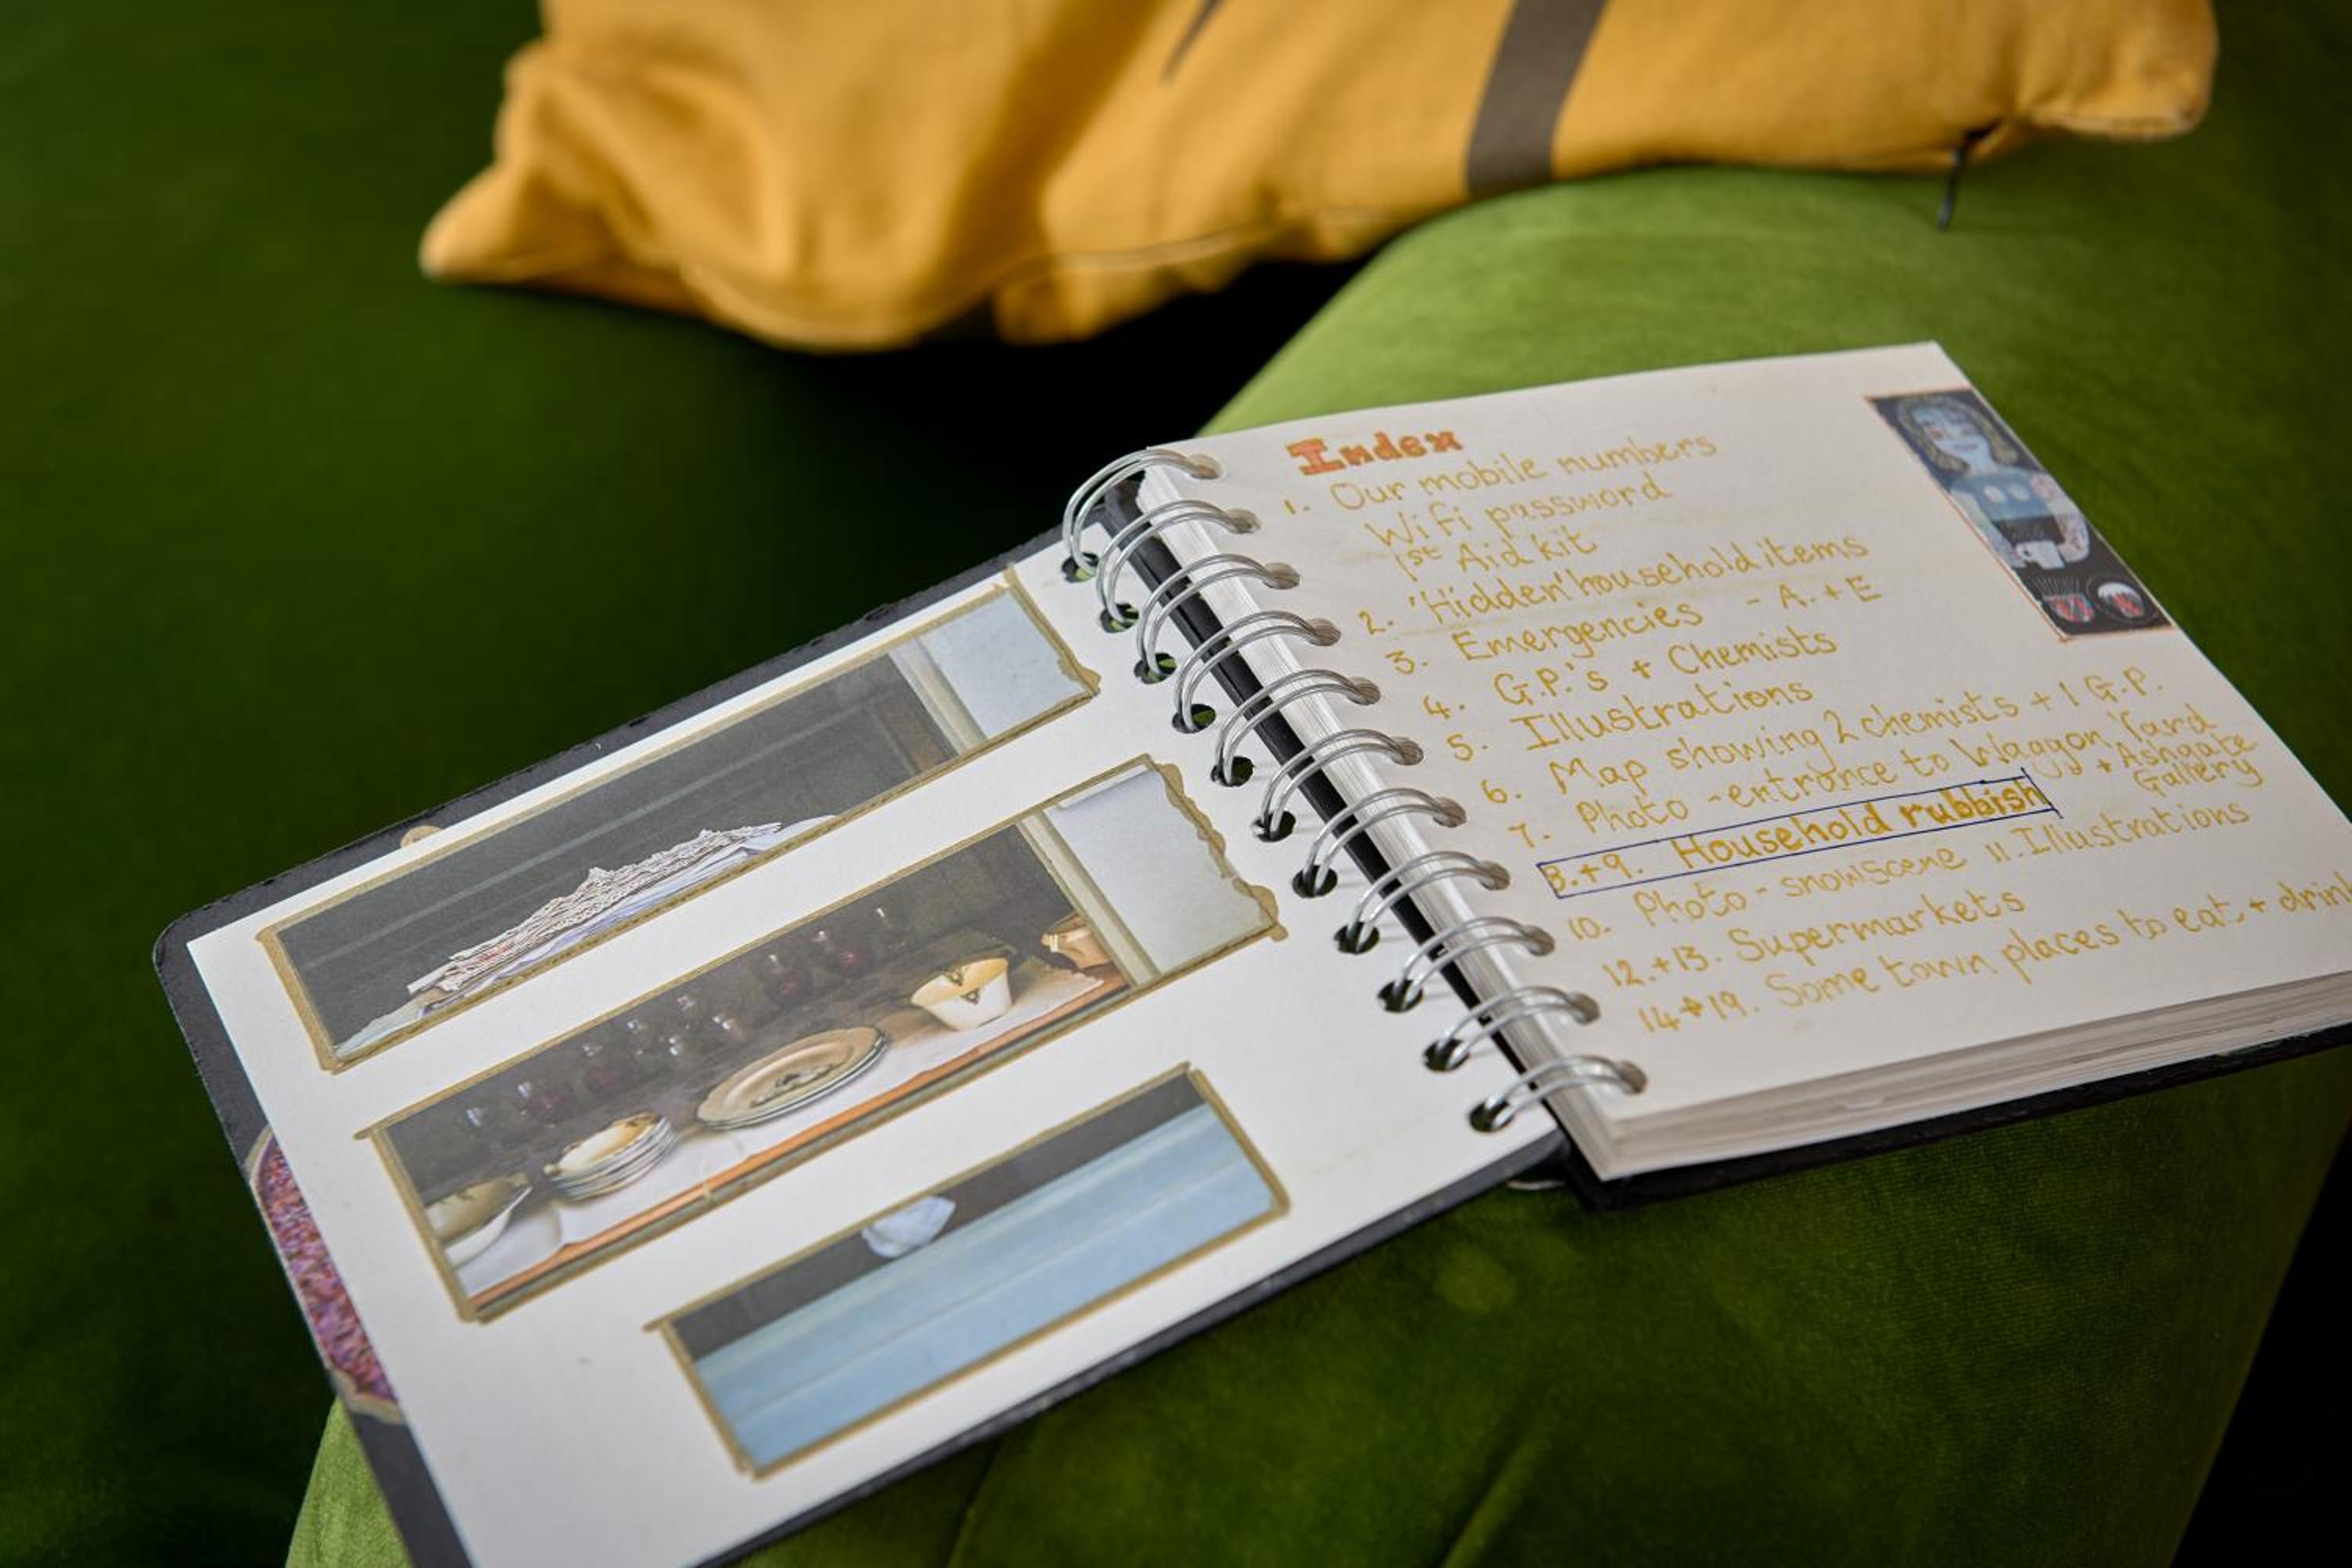 Index
1. Our mobile numbers
Wifi password
1st Aid kit
2. 'Hidden' household items
3. Emergencies - A. + E
4. G.P.'s + Chemists
5. Illustrations
6. Map showing 2 chemists + 1 G.P.
7. Photo - entrance to Waggon Yard
+ Ashgate
Gallery
8.+9. Household rubbish
10. Photo - snowscene 11. Illustrations
12.+13. Supermarkets
14+19. Some town places to eat + drink